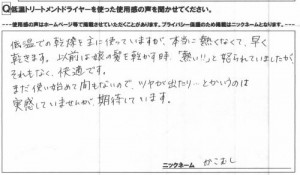 Q低温トリートメントドライヤーを使った使用感の声を聞かせてください。
使用感の声はホームページ等で掲載させていただくことがあります。プライバシー保護のため掲載はニックネームとなります。
低温での乾燥を主に使っていますが、本当に熱くなくて、早く
乾きます。以前は娘の髪を乾かす時、「熱い!!」と怒られていましたが、
それもなく、快適です。
まだ使い始めて間もないので、ツヤが出たり…とかいうのは
実感していませんが、期待しています。
ニックネーム かこむし